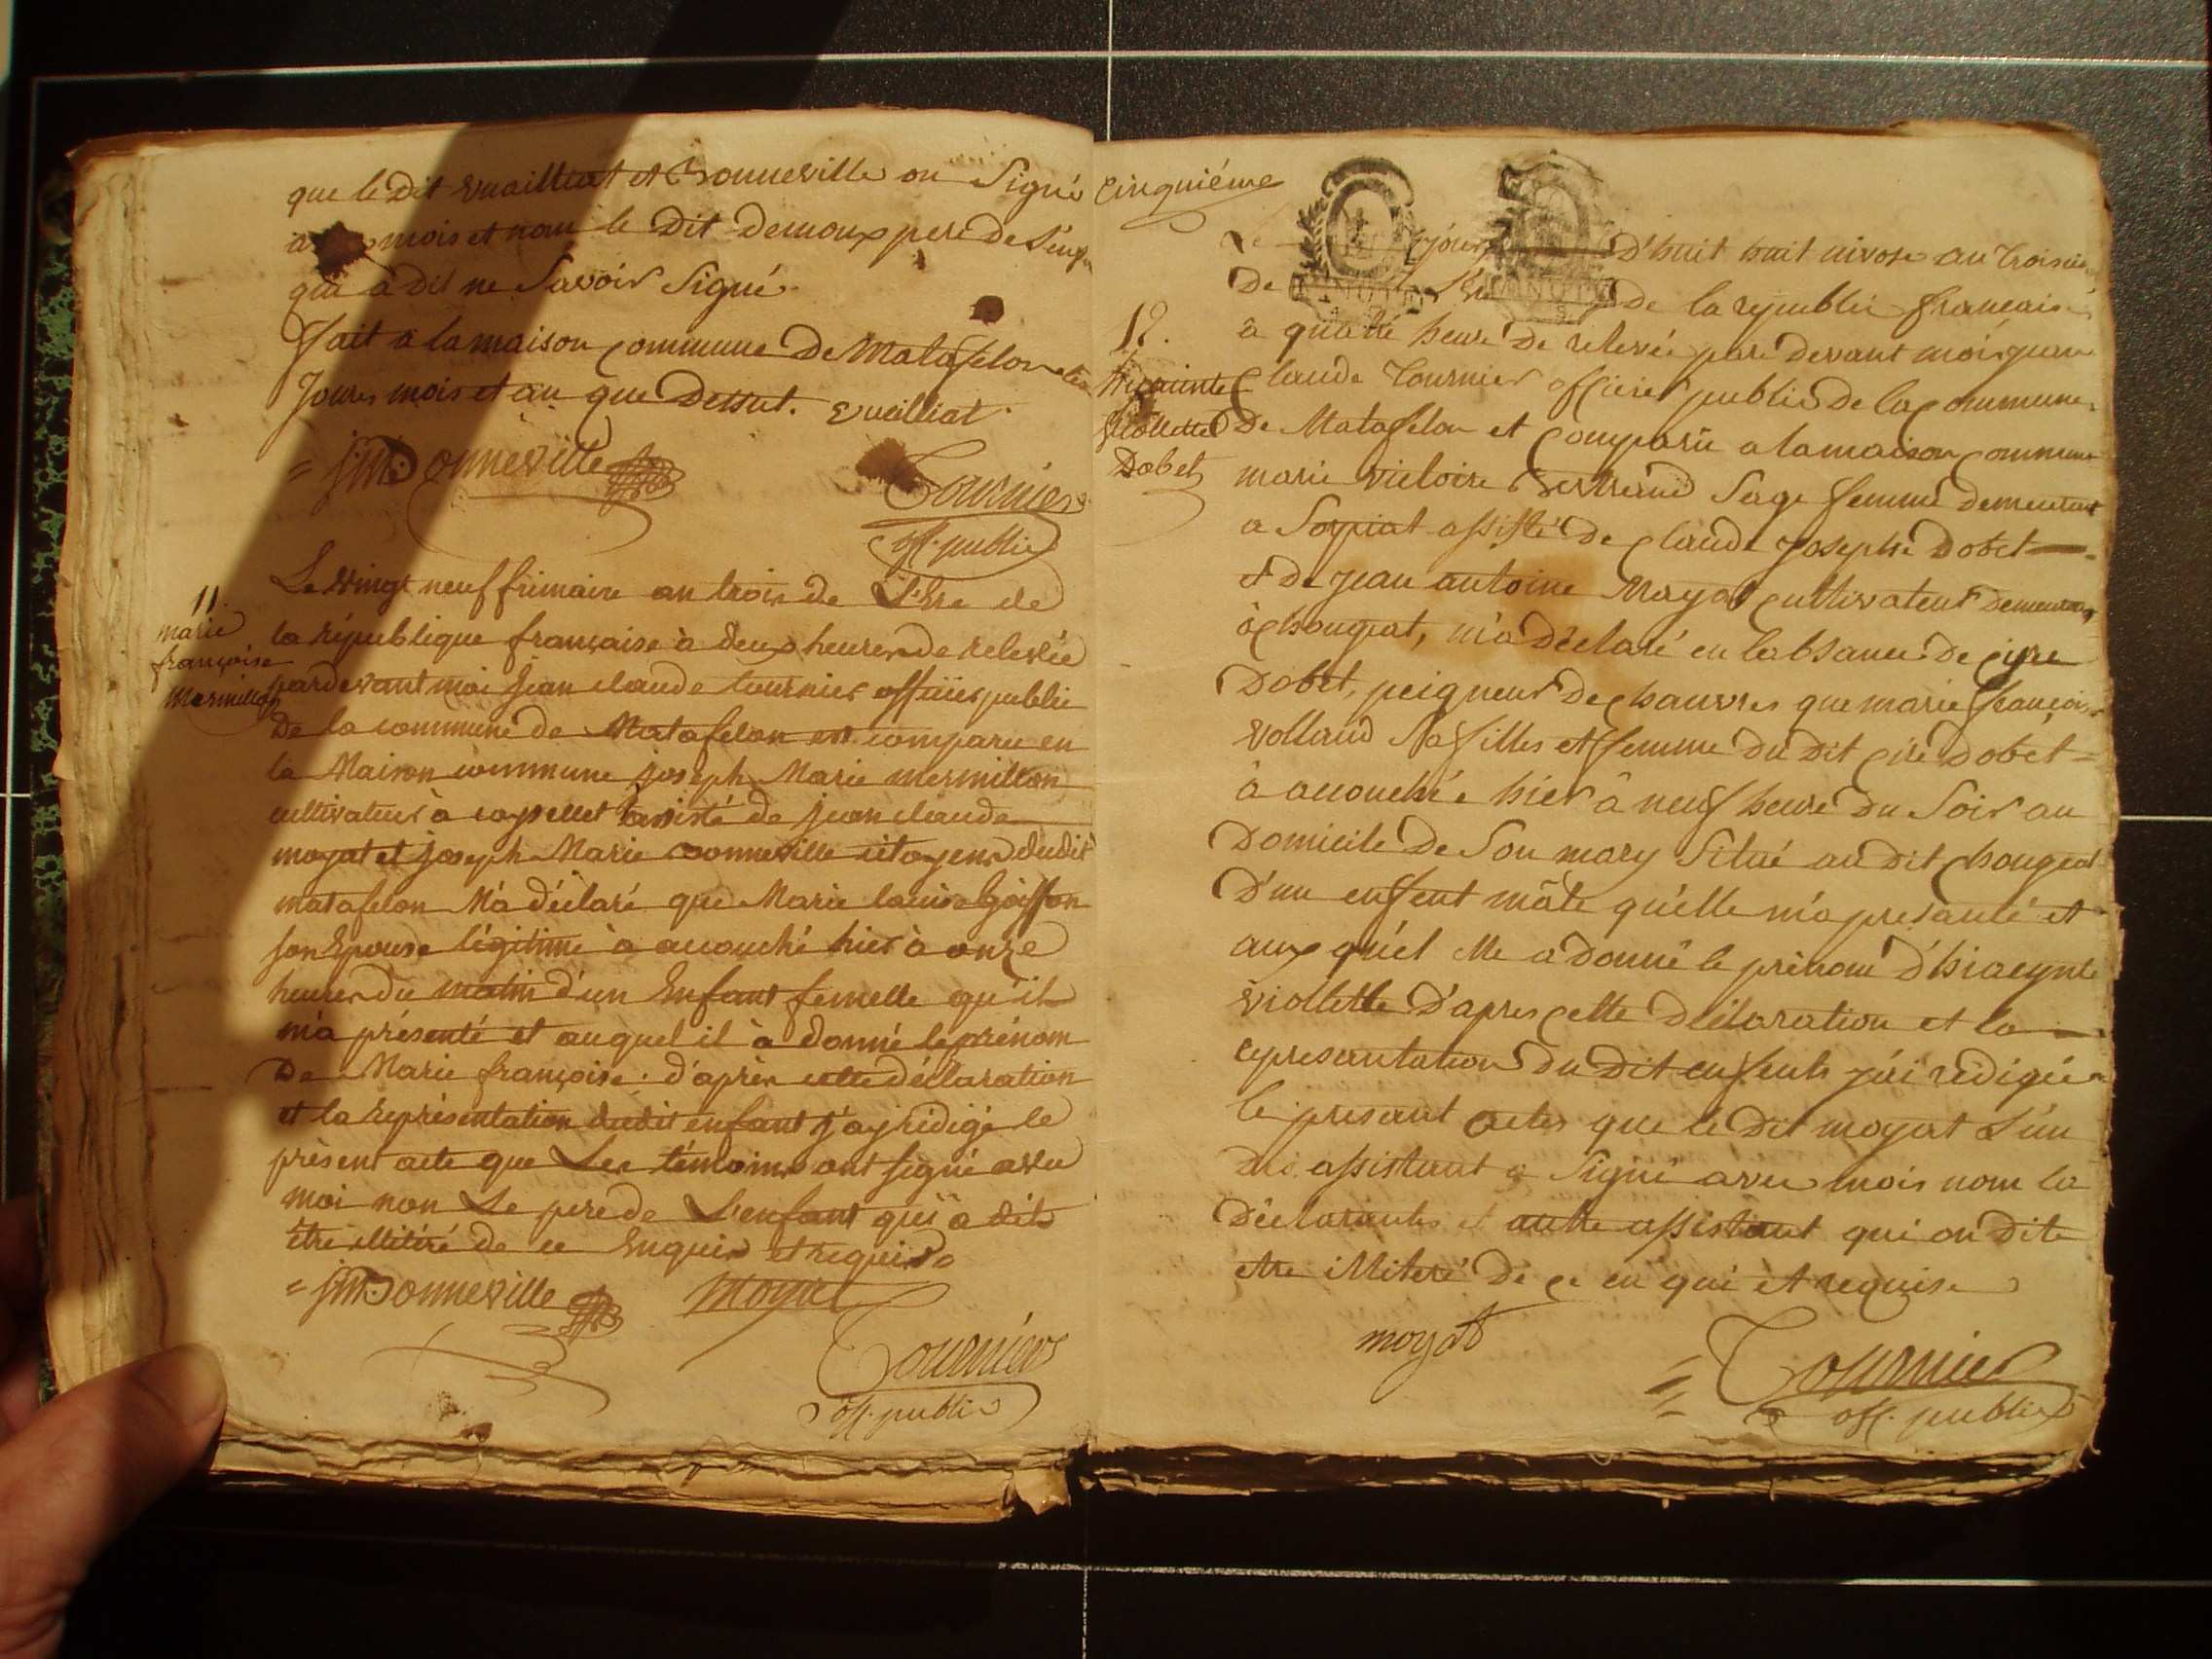 que le dit Vuailliat et Bonneville on Signé
mois et nom le dit demoux pere de
qui a dit ne Savoir Signé.
fait a la maison Commune De Matafelon
Jours mois et an que Dessut. Vuailliat.
= jm Bonneville
Tournier
off. public
11.
marie
françoise
Mermillon
Le vingt neuf frimaire an trois de L'Ere de
la république française à deux heures de relevée
pardevant moi jean claude tournier officier public
De la commune de Matafelon est comparu en
la Maison commune joseph Marie mermillon
cultivateur à assisté de jean claude
moyat et joseph Marie bonneville citoyens dudit
matafelon M'a déclaré que Marie louise Goiffon
son Epouse légitime à accouché hier à onze
heures du matin d'un Enfant femelle qu'il
m'a présenté et auquel il à donné le prénom
De Marie françoise. d'après cette déclaration
et la représentation dudit enfant j'ay rédigé le
présent acte que Les témoins ont signé avec
moi non Le pere de L'enfant qui à dit
être illitéré de ce Enquis et requis
= jm Bonneville
moyat
Tournier
off. public
Cinquiéme
12.
Hyacinte
Viollette
Dobet
Le jour D'huit huit nivose an Troisié
De L'Ere de la republic français
à quatre heure De relevée pare devant mois jean
Claude Tournier officier public De la Commune
De Matafelon et Comparü a la maison Commune
marie victoire Bertrand Sage femme demeurant
a Soppiat assisté De Claude Josephe Dobet
et De Jean antoine Moyat Cultivateur demeurant
à Chougeat, m'a Déclaré en labsance De Cyre
Dobet, peigneur De Chanvres que marie françoi
Volland Sa filles et femme du dit Cire Dobet =
â acouchée hier â neuf heure Du Soir au
Domicile De Son mary Situé au dit Chougeat
D'un enfent mâle quélle m'a presanté et
auxquél elle a Donné le prénom D'hiacynte
Viollette D'apres Cette Déclaration et la
representation Du Dit enfents j'ai redigée
le presant actes que le Dit moyat L'un
des assistant a Signé avec mois nom la
Déclarante et autre assistant qui on Dite
etre illiteré De Ce en qui et requise
moyat
= Tournier
off. public